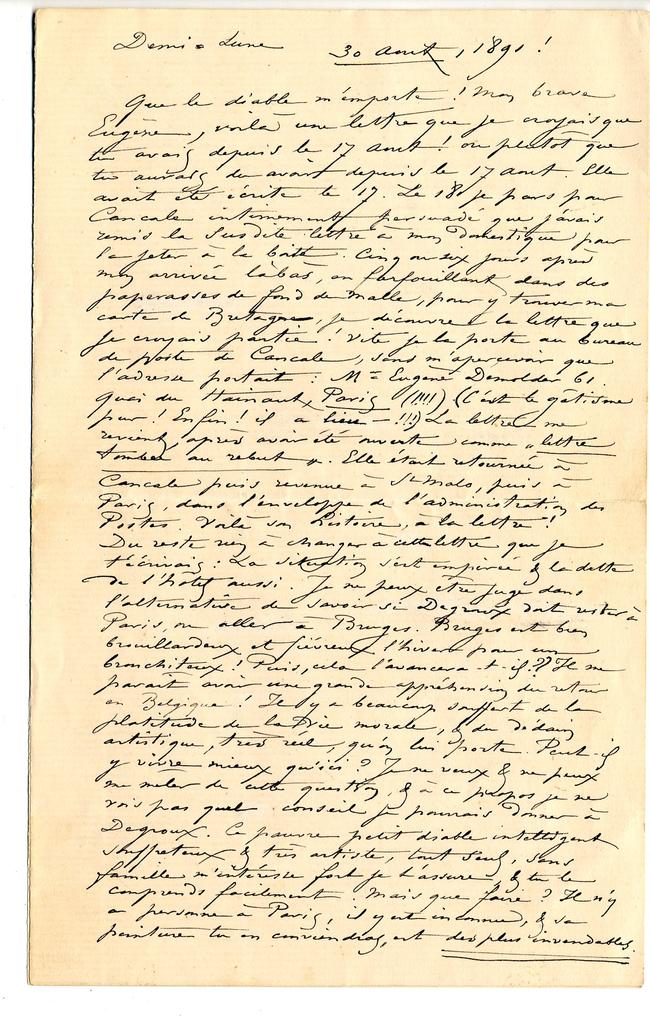 Demi=Lune 30 Aout, 1891 !
Que le diable m'emporte ! Mon brave
Eugène, voilà une lettre que je croyais que
tu avais depuis le 17 Aout ! ou plutôt que
tu aurais du avoir depuis le 17 aout. Elle
avait été écrite le 17. Le 18 je pars pour
Cancale intimement persuadé que j'avais
remis la susdite lettre à mon domestique pour
la jeter à la boîte. Cinq ou six jours après
mon arrivée làbas, en farfouillant dans des
paperasses de fond de malle, pour y trouver ma
carte de Bretagne, je découvre la lettre que
je croyais partie ! Vite je la porte au bureau
de poste de Cancale, sans m'apercevoir que
l'adresse portait : Mr Eugène Demolder 61.
quai du Hainaut, Paris (!!!!) (C'est le gâtisme
pur ! Enfin ! il a lieu – !!!) La lettre me
revient, après avoir été ouverte comme „ lettre
tombée au rebut „. Elle était retournée à
Cancale puis revenue à St Malo, puis à
Paris, dans l'enveloppe de l'administration des
Postes. Voilà son histoire, a la lettre !
Du reste rien à changer à cette lettre que je
t'écrivais : La situation s'est empirée & la dette
de l'hôtel aussi. Je ne peux être juge dans
l'alternative de savoir si Degroux doit rester à
Paris, ou aller à Bruges. Bruges est bien
brouillardeux et fiévreux l'hiver pour un
bronchiteux ! Puis, cela l'avancera-t-il ?? Il me
paraît avoir une grande appréhension du retour
en Belgique ! Il y a beaucoup souffert de la
platitude de la Vie morale, & du dédain
artistique, très réel, qu'on lui porte. Peut-il
y vivre mieux qu'ici ? Je ne veux & ne peux
me mêler de cette question, & à ce propos je ne
vois pas quel conseil je pourrais donner à
Degroux. Ce pauvre petit diable intelligent
souffreteux & très artiste, tout seul, sans
famille m'intéresse fort je t'assure, & tu le
comprends facilement. Mais que faire ? Il n'y
a personne à Paris, il y est inconnu, & sa
peinture tu en conviendras, est des plus invendables.